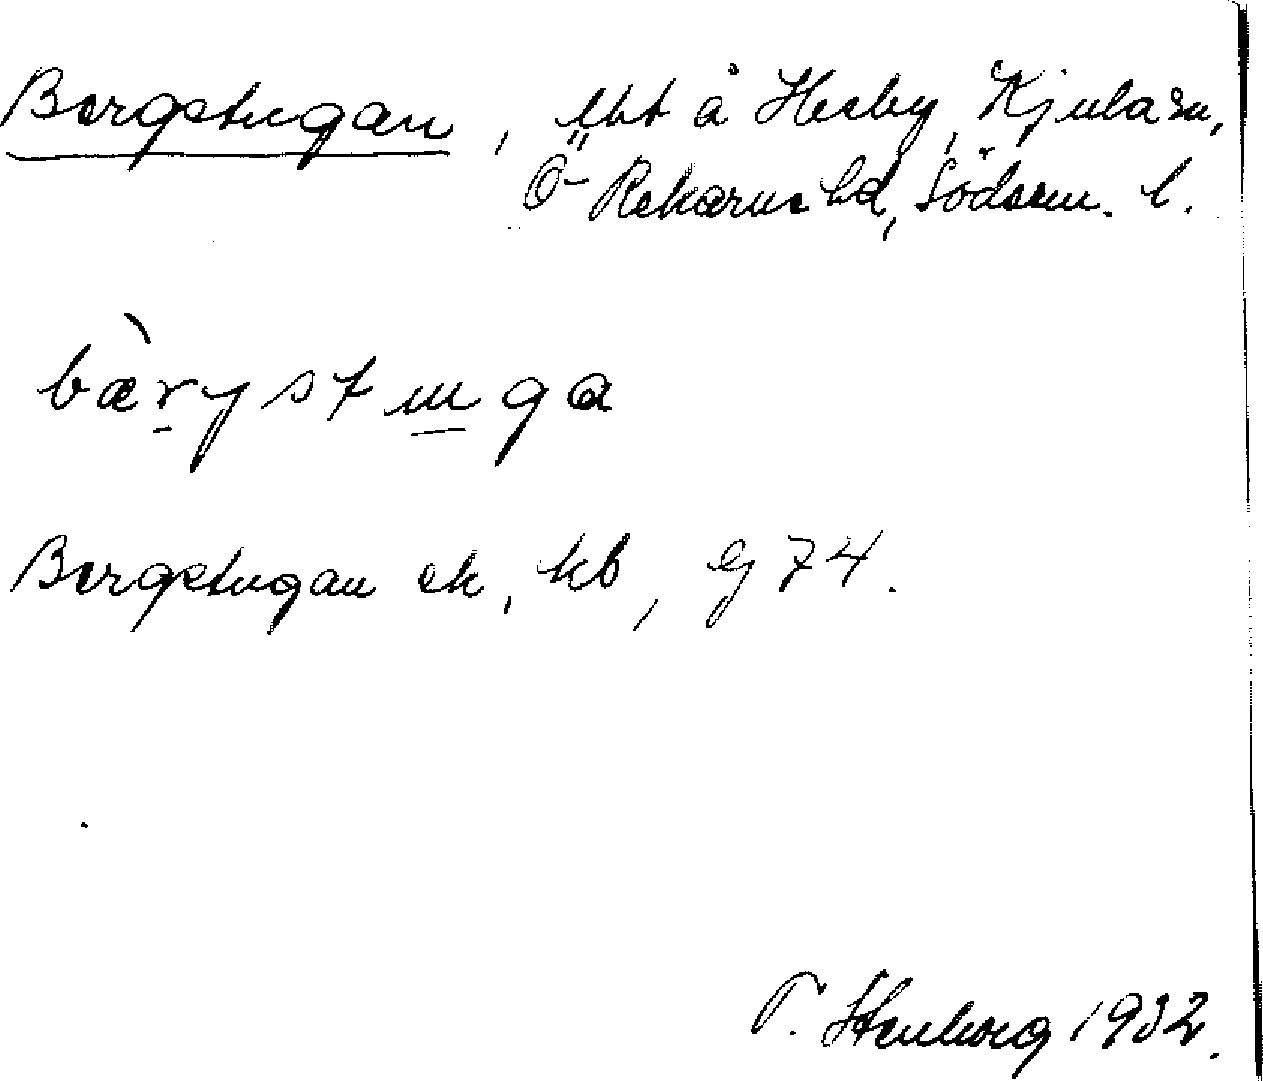 Bergstugan, lht å Heeby, Kjula sn,
Ö-Rekarne hd, Söderm. l.
bæ̀rystuga
Bergstugan ek, kb, Gj 74.
T. Stenborg 1932.